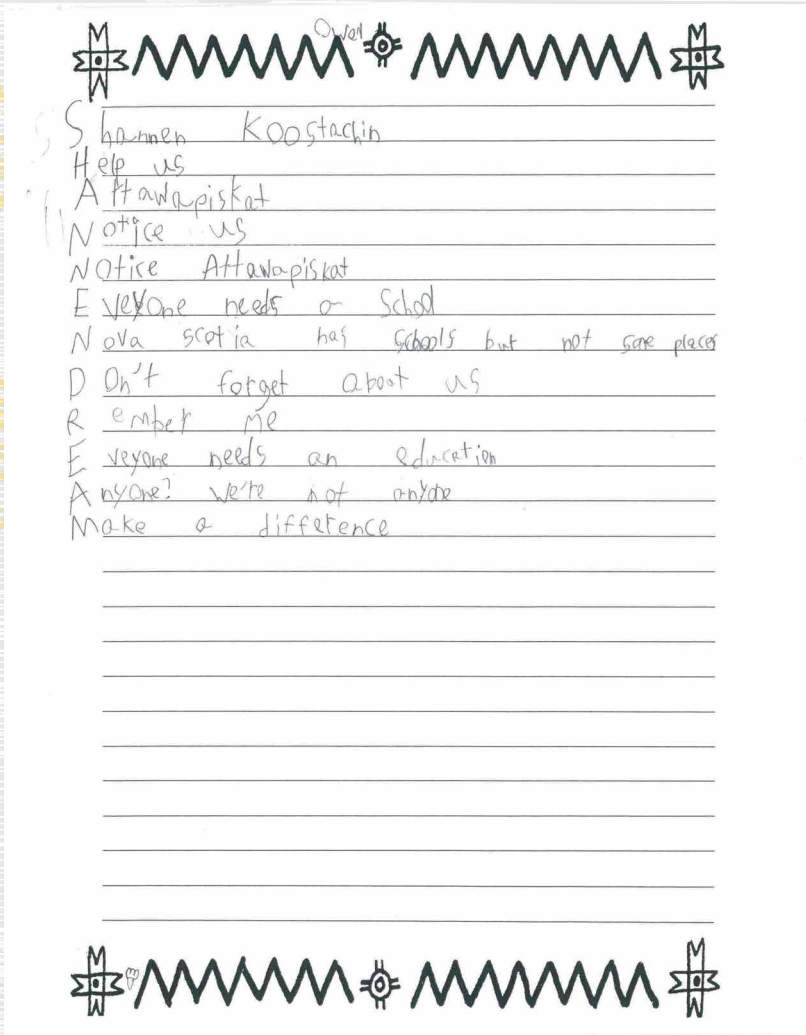 Owen
Shannen Koostachin
Help us
Attawapiskat
Notice us
Notice Attawapiskat
Eveyone needs a School
Nova scotia has schools but not some places
Don't forget about us
Rember me
Eveyone needs an education
Anyone? We're not anyone
Make a difference